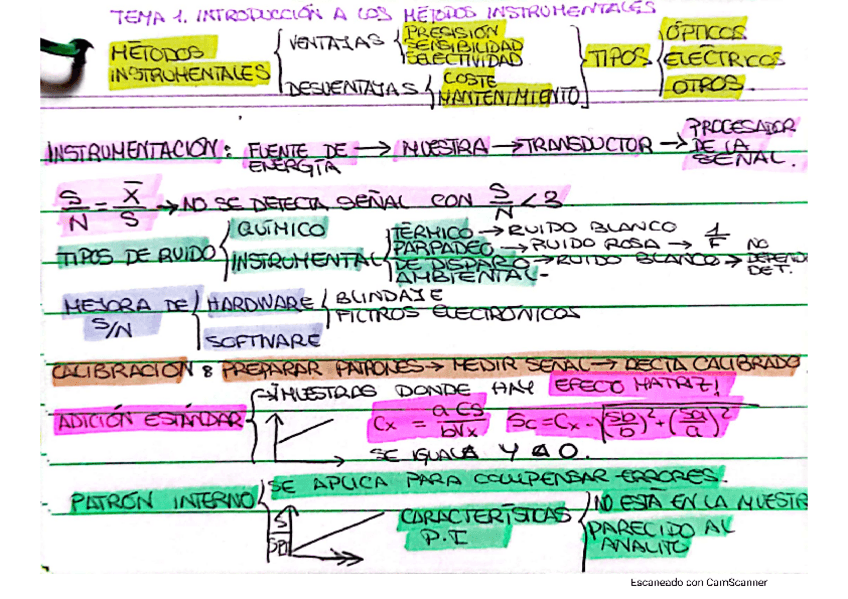 TEMA 1. INTRODUCCIÓN A LOS MÉTODOS INSTRUMENTALES
MÉTODOS INSTRUMENTALES
VENTAJAS
PRECISIÓN
SENSIBILIDAD
SELECTIVIDAD
DESVENTAJAS
COSTE
MANTENIMIENTO
TIPOS
ÓPTICOS
ELÉCTRICOS
OTROS.
INSTRUMENTACIÓN: FUENTE DE ENERGÍA → MUESTRA → TRANSDUCTOR → PROCESADOR DE LA SEÑAL.
S/N = X̄/S → NO SE DETECTA SEÑAL CON S/N < 3
TIPOS DE RUIDO
QUÍMICO
INSTRUMENTAL
TÉRMICO → RUIDO BLANCO
PARPADEO → RUIDO ROSA → 1/F
DE DISPARO → RUIDO BLANCO → NO DEPEND DE T.
AMBIENTAL-
MEJORA DE S/N
HARDWARE
BLINDAJE
FILTROS ELECTRÓNICOS
SOFTWARE
CALIBRACIÓN: PREPARAR PATRONES → MEDIR SEÑAL → RECTA CALIBRADO
ADICIÓN ESTÁNDAR
→ ¡MUESTRAS DONDE HAY EFECTO MATRIZ!
Cx = a Cs / b Vx
Sc = Cx · √(Sb/b)² + (Sa/a)²
SE IGUALA Y A O.
PATRÓN INTERNO
SE APLICA PARA COMPENSAR ERRORES.
S
CARACTERÍSTICAS P.I
NO ESTÁ EN LA MUESTR
PARECIDO AL ANALITO
Escaneado con CamScanner